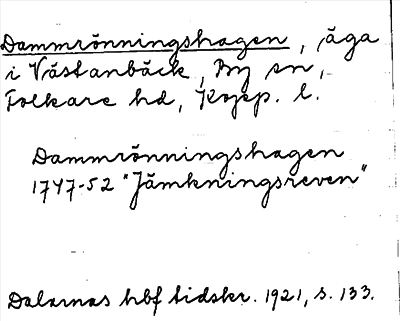 Dammrönningshagen, äga
i Västanbäck, By sn,
Folkare hd, Kopp. l.
Dammrönningshagen
1747-52 "Jämkningsreven"
Dalarnas hbf tidskr. 1921, s. 133.